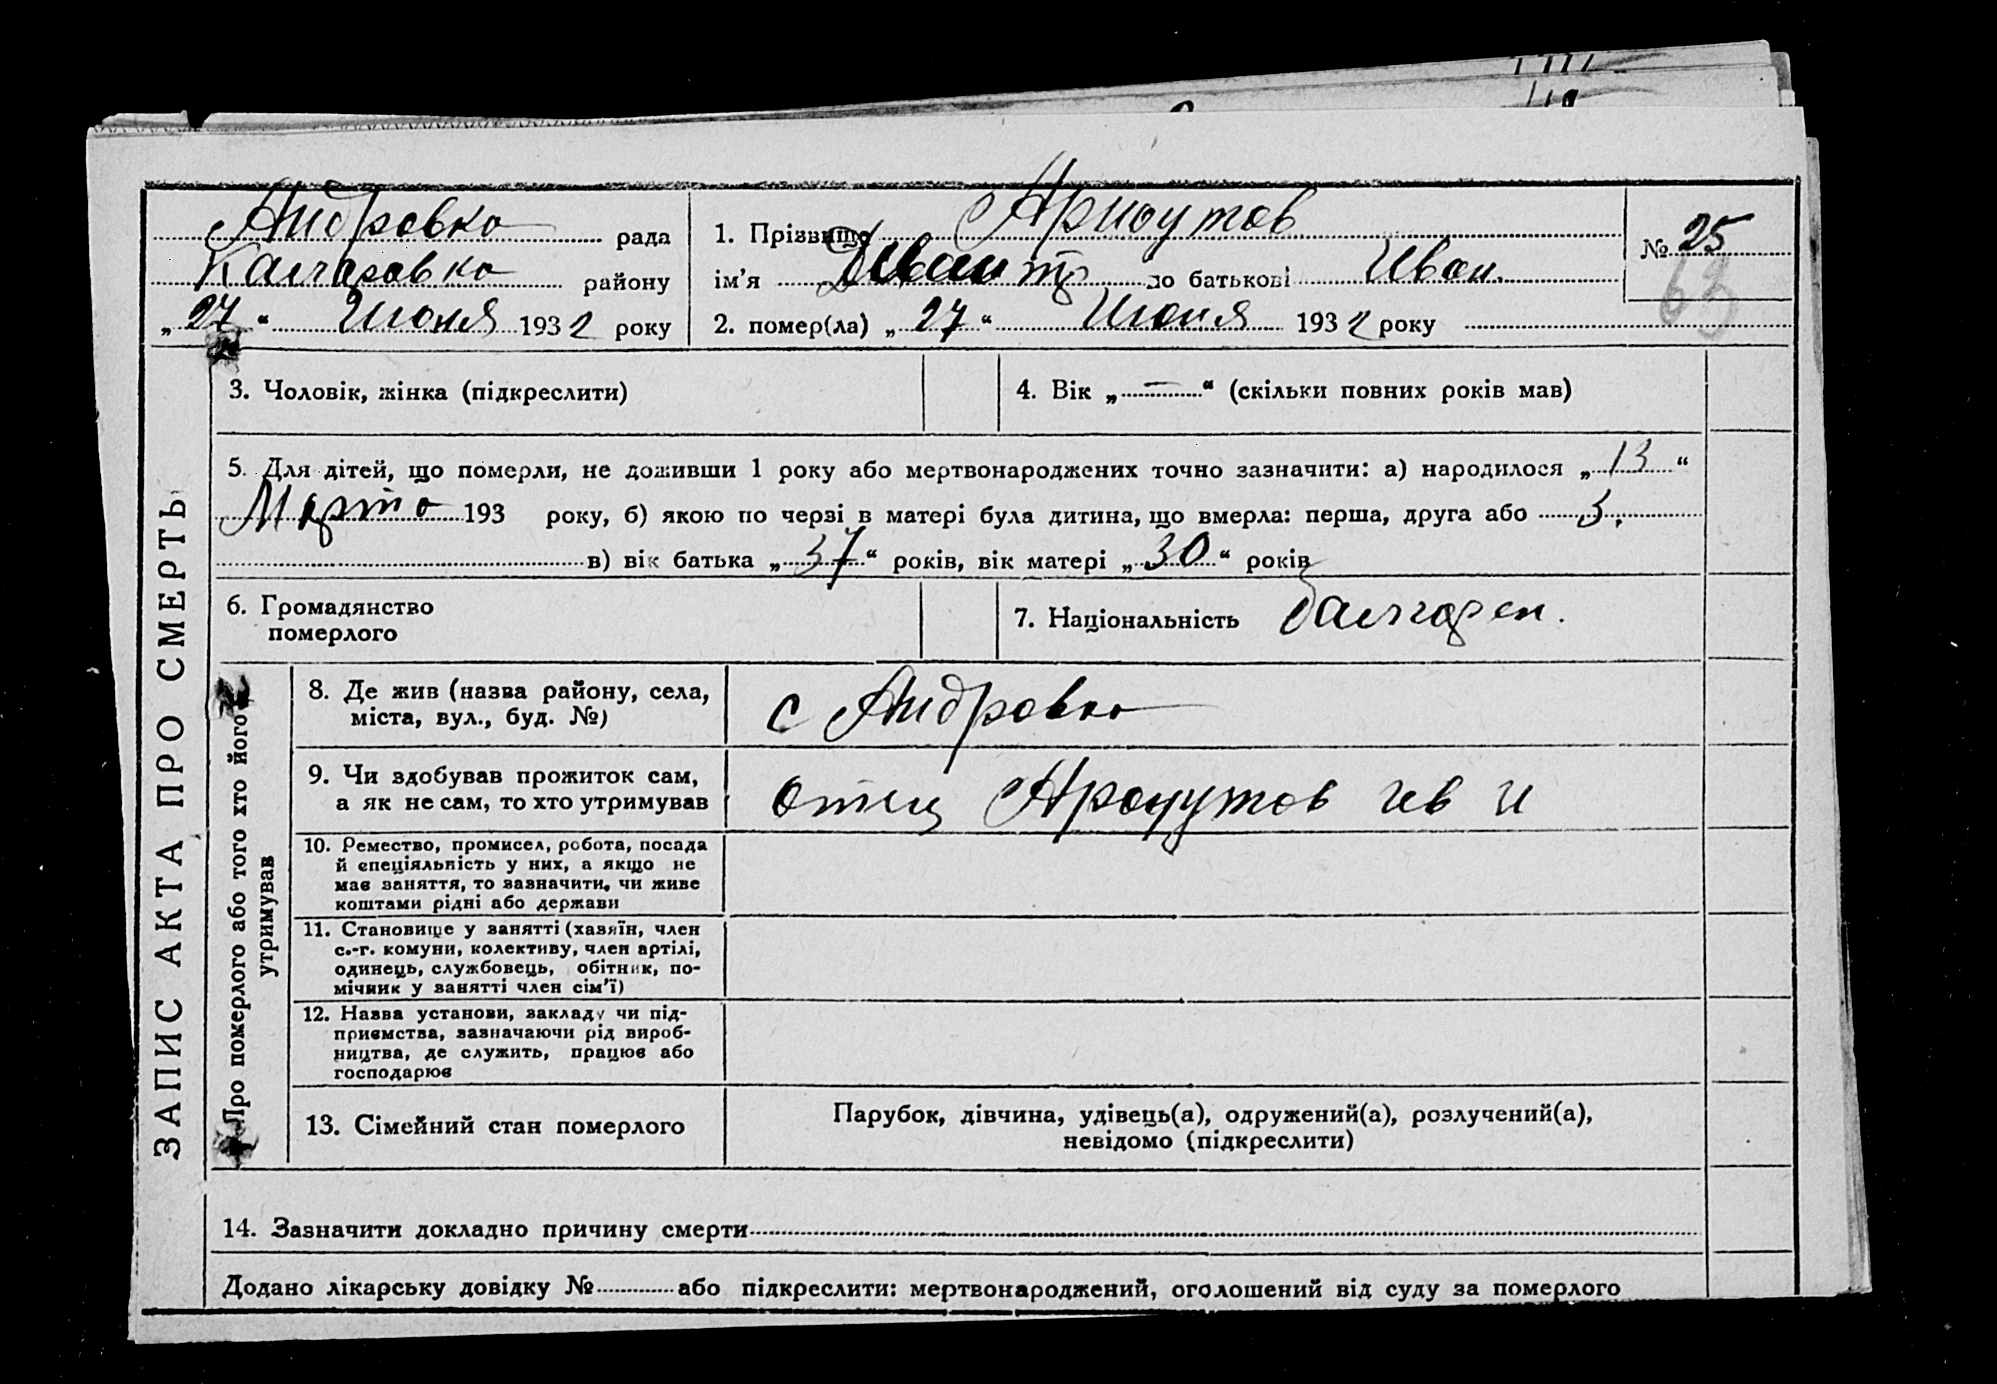 Андровка рада
Колларовка району
„27“ Июня 1932 року
1. Прізвище Арноутов
ім'я по батькові Иван.
2. помер(ла) „27“ Июня 1932 року
№ 25
63
ЗАПИС АКТА ПРО СМЕРТЬ
3. Чоловік, жінка (підкреслити)
4. Вік „—“ (скільки повних років мав)
5. Для дітей, що померли, не доживши 1 року або мертвонароджених точно зазначити: а) народилося „13“
Марта 193 року, б) якою по черзі в матері була дитина, що вмерла: перша, друга або 3.
в) вік батька „37“ років, вік матері „30“ років
6. Громадянство
померлого
7. Національність болгарен.
Про померлого або того хто його
утримував
8. Де жив (назва району, села,
міста, вул., буд. №)
с Андровка
9. Чи здобував прожиток сам,
а як не сам, то хто утримував
отец Арноутов Ив И
10. Ремество, промисел, робота, посада
й спеціяльність у них, а якщо не
має заняття, то зазначити, чи живе
коштами рідні або держави
11. Становище у занятті (хазяїн, член
с.-г. комуни, колективу, член артілі,
одинець, службовець, обітник, по-
мічник у занятті член сім'ї)
12. Назва установи, закладу чи під-
приємства, зазначаючи рід вироб-
ництва, де служить, працює або
господарює
13. Сімейний стан померлого
Парубок, дівчина, удівець(а), одружений(а), розлучений(а),
невідомо (підкреслити)
14. Зазначити докладно причину смерти
Додано лікарську довідку № або підкреслити: мертвонароджений, оголошений від суду за померлого